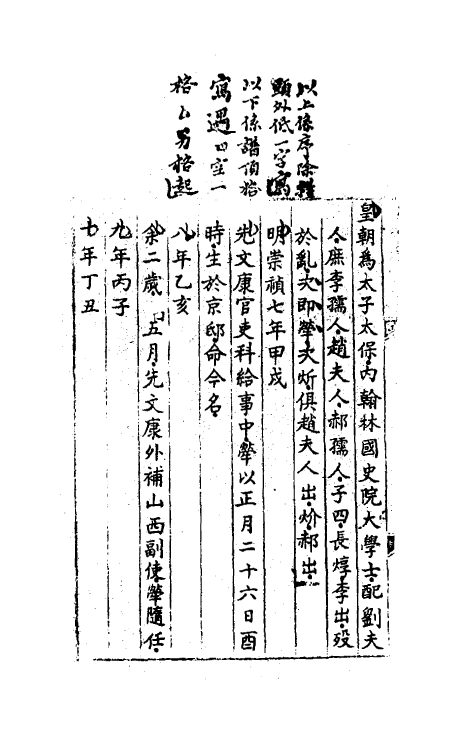 以上係序除雙
顯外低一字寫
以下係譜頂格
寫遇口空一
格厶另格起
皇朝為太子太保内翰林國史院大學士配劉夫
人庶李孺人趙夫人郝孺人子四長焞李出歿
於亂次即犖次炘俱趙夫人出炌郝出
明崇禎七年甲戌
先文康官吏科給事中犖以正月二十六日酉
時生於京邸命今名
八年乙亥
余二歲五月先文康外補山西副使犖隨任
九年丙子
十年丁丑